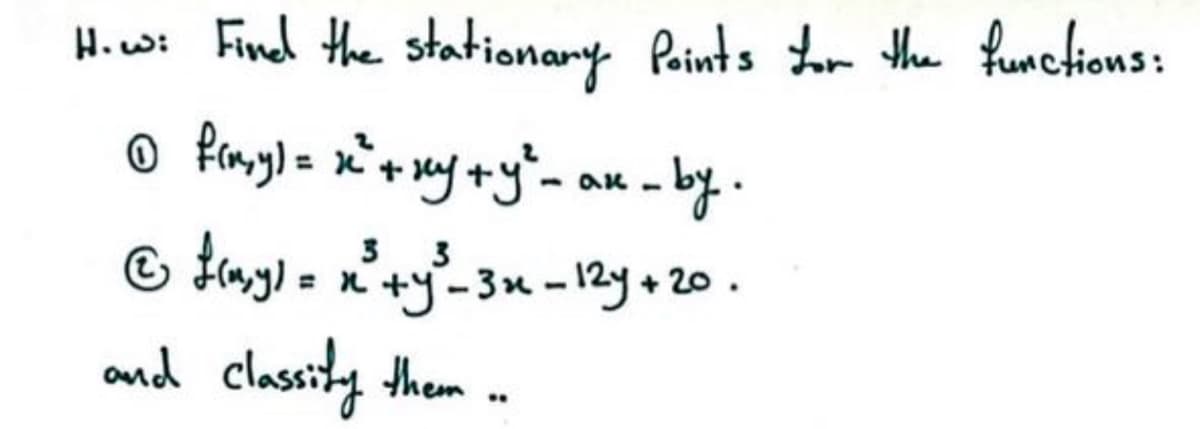 H.w: Find the stationary Points for the functions:
① f(x,y) = x² + xy + y² - ax - by .
② f(x,y) = x³ + y³ - 3x - 12y + 20 .
and classify them ..